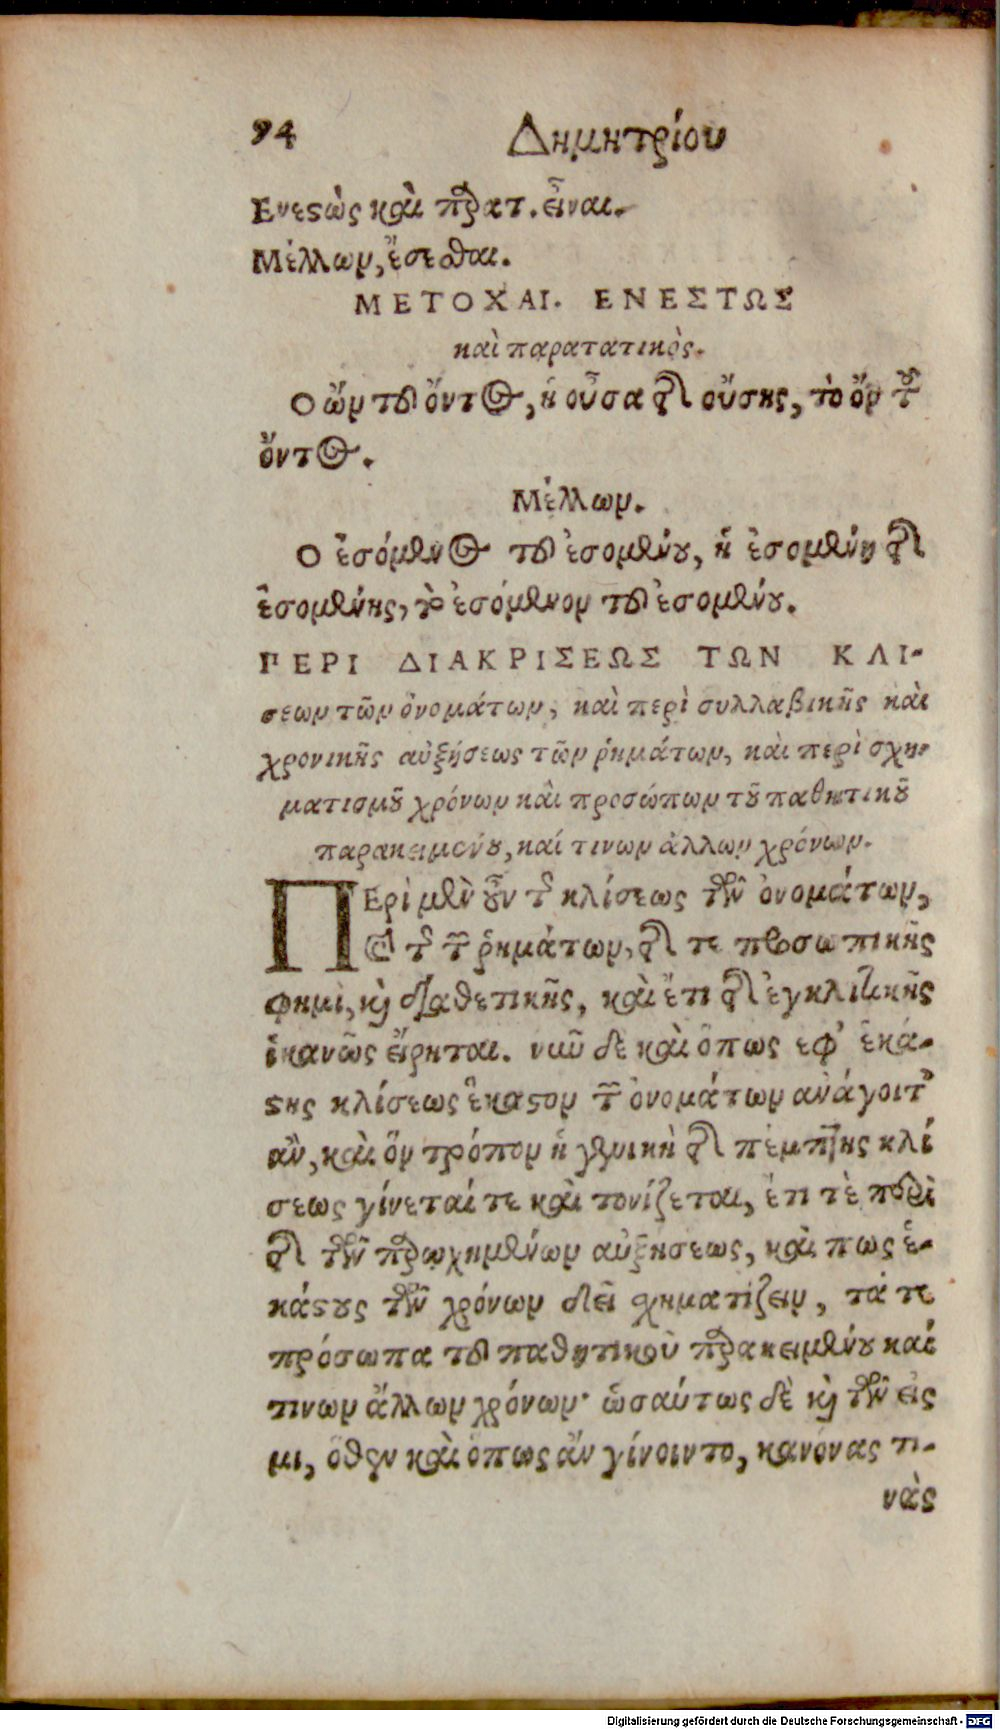 94 Δημητρίου
Ενεϛὼς καὶ παρατ. εἶναι.
Μέλλων, ἔσεσθαι.
ΜΕΤΟΧΑΙ. ΕΝΕΣΤΩΣ
καὶ παρατατικὸς.
Ο ὢν τοῦ ὄντος, ἡ οὖσα τῆς οὔσης, τὸ ὂν τοῦ
ὄντος.
Μέλλων.
Ο ἐσόμενος τοῦ ἐσομένου, ἡ ἐσομένη τῆς
ἐσομένης, τὸ ἐσόμενον τοῦ ἐσομένου.
ΠΕΡΙ ΔΙΑΚΡΙΣΕΩΣ ΤΩΝ ΚΛΙ-
σεων τῶν ὀνομάτων, καὶ περὶ συλλαβικῆς καὶ
χρονικῆς αὐξήσεως τῶν ῥημάτων, καὶ περὶ σχη-
ματισμοῦ χρόνων καὶ προσώπων τοῦ παθητικοῦ
παρακειμένου, καί τινων ἄλλων χρόνων.
ΠΕρὶ μὲν οὖν τῆς κλίσεως τῶν ὀνομάτων,
καὶ τῆς τῶν ῥημάτων, τῆς τε προσωπικῆς
φημὶ, καὶ διαθετικῆς, καὶ ἔτι τῆς ἐγκλιτικῆς
ἱκανῶς εἴρηται. νῦν δὲ καὶ ὅπως ἐφ' ἑκά-
ϛης κλίσεως ἕκαϛον τῶν ὀνομάτων ἀνάγοιτο
ἂν, καὶ ὃν τρόπον ἡ γενικὴ τῆς πέμπτης κλί
σεως γίνεταί τε καὶ τονίζεται, ἔτι τὲ περὶ
τῆς τῶν παρῳχημένων αὐξήσεως, καὶ πως ἑ-
κάϛους τῶν χρόνων δεῖ σχηματίζειν, τά τε
πρόσωπα τοῦ παθητικοῦ παρακειμένου καί
τινων ἄλλων χρόνων· ὡσαύτως δὲ καὶ τῶν εἰς
μι, ὅθεν καὶ ὅπως ἂν γίνοιντο, κανόνας τι-
νὰς
Digitalisierung gefördert durch die Deutsche Forschungsgemeinschaft - DFG